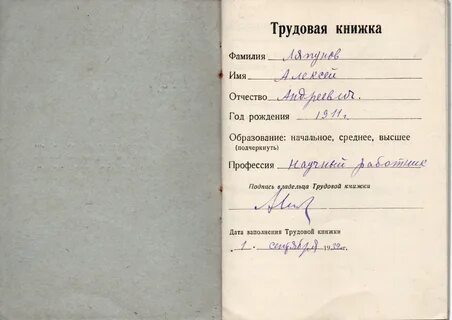 Трудовая книжка
Фамилия Ляпунов
Имя Алексей
Отчество Андреевич.
Год рождения 1911г.
Образование: начальное, среднее, высшее
(подчеркнуть)
Профессия научный работник
Подпись владельца Трудовой книжки
Дата заполнения Трудовой книжки
1. сентября 19 г.